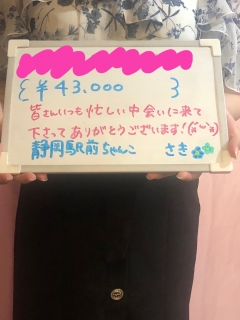 { ¥43,000 }
皆さんいつも忙しい中会いに来て
下さってありがとうございます!(*¨*)
静岡駅前ちゃんこ さき